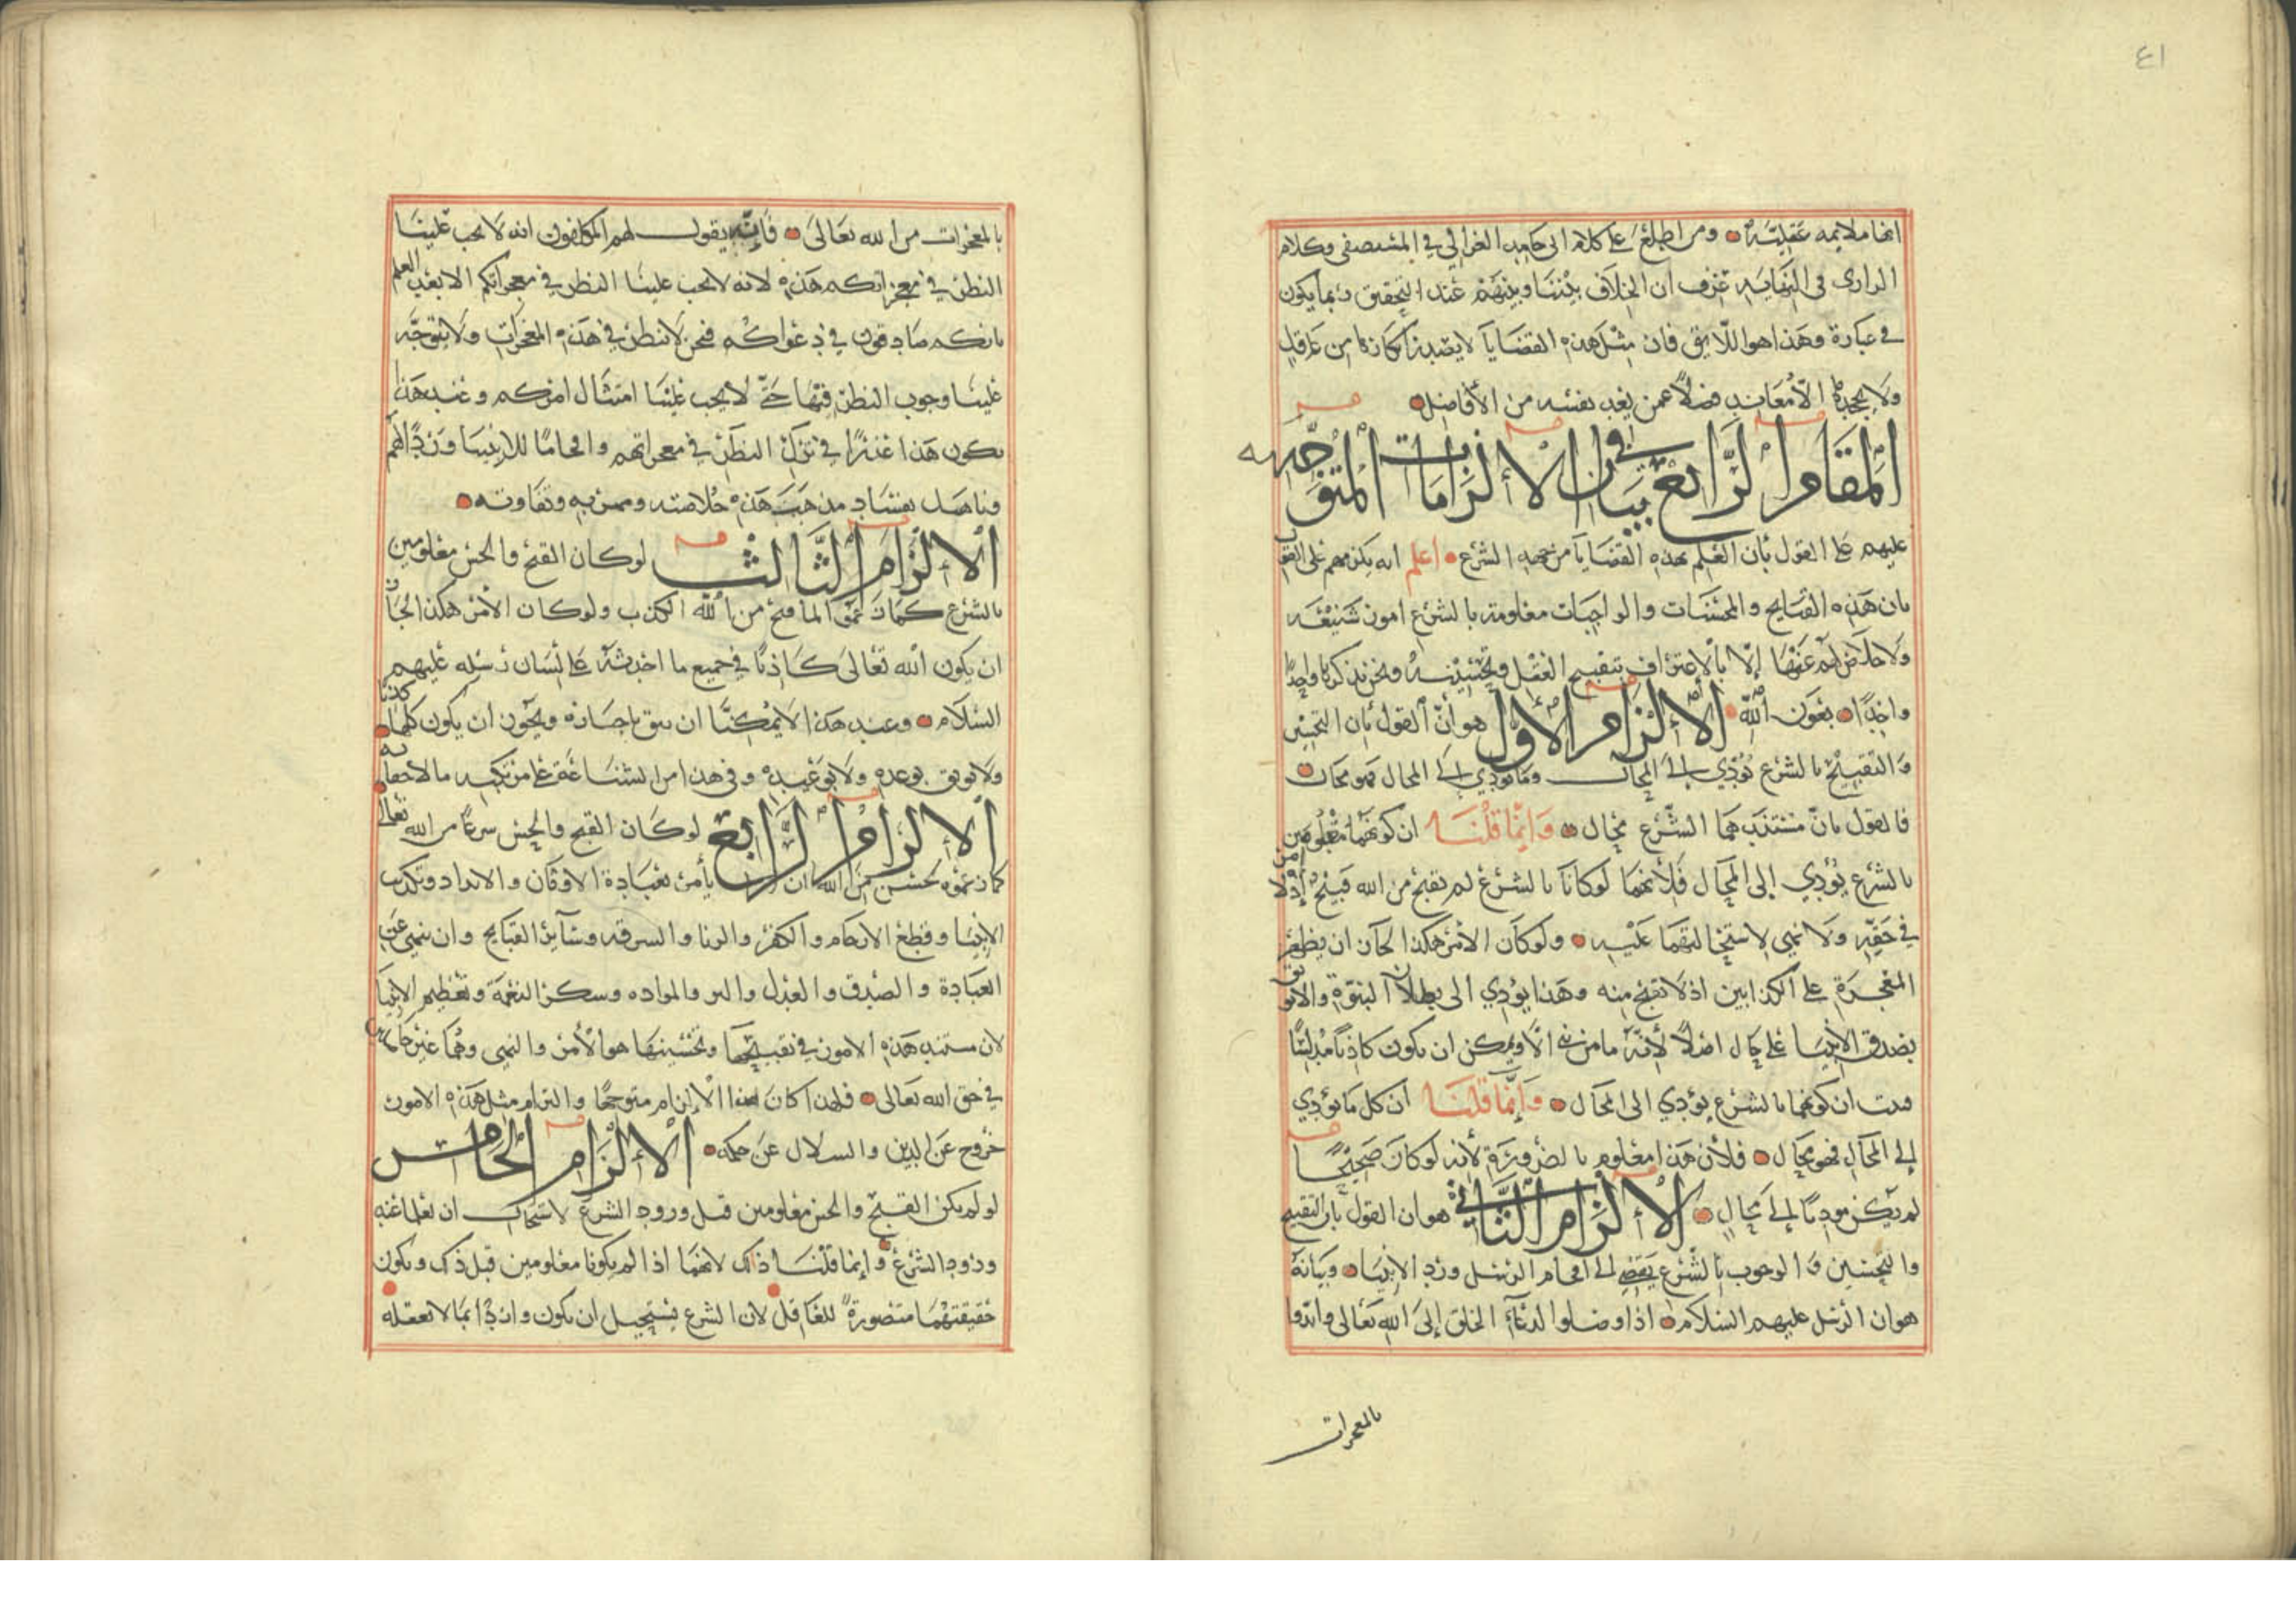 ٤١
انها ملايمه عقليّة ومن اطلع على كلام ابي حامد الغزالي في المستصفى وكلام
الرازى في النهايه عرف ان الخلاف بيننا وبينهم عند التحقيق ربما يكون
في عبارة وهذا هو اللائق فان مثل هذه القضايا لا يصدر انكارها من عاقل
ولا يجحدها الا معاند فضلاً عمن يعد نفسه من الأفاضل
المقام الرابع في بيان الالزامات المتوجهه
عليهم على القول بأن العلم بهذه القضايا من جهه الشرع اعلم انه يلزمهم على القول
بان هذه القبايح والمحسنات والواجبات معلومة بالشرع امور شنيعه
ولا خلاص لهم عنها إلا بالاعتراف بتقبيح العقل وتحسينه ونحن نذكرها واحدًا
واحدًا بعون الله الالزام الاول هو أنّ القول بأن التحسين
والتقبيح بالشرع يُؤدّي الى المحال وما يؤدي الى المحال فهو محال
فالقول بانّ مستندهما الشرع محال وإنّما قلنا ان كونهما معلومين
بالشرع يؤدي إلى المحال فلأنهما لو كانا بالشرع لم يقبح من الله قبيح إذ لا امر
في حقه ولا نهي لاستحالتهما عليه ولو كان الأمر هكذا لجاز ان يظهر
المعجزة على الكذابين اذ لا تقبح منه وهذا يؤدي الى بطلان النبوة والا نوثق
بصدق الأنبياء على حال اصلاً لأنه ما من نبي الا ويمكن ان يكون كاذبًا مدلسًا
فثبت ان كونهما بالشرع يؤدي الى المحال وإنّما قلنا ان كل ما يؤدي
إلى المحال فهو محال فلأن هذا معلوم بالضرورة لأنه لو كان صحيحًا
لم يكن موديًا إلى محال الالزام الثاني هو ان القول بأن التقبيح
والتحسين والوجوب بالشرع يفضي الى افحام الرسل ورد الانبياء وبيانه
هو ان الرسل عليهم السلام اذا وصلوا لدعاء الخلق إلى الله تعالى واتوا
بالمعجزات
بالمعجزات من الله تعالى فإنه يقول لهم المكلفون انه لا يجب علينا
النظر في معجزاتكم هذه لانه لا يجب علينا النظر في معجزاتكم الا بعد العلم
بانكم صادقون في دعواكم فنحن لا ننظر في هذه المعجزات ولا يتوجّه
علينا وجوب النظر فيها حتى لا يجب علينا امتثال امركم وعند هذا
يكون هذا عذرًا في ترك النظر في معجزاتهم وافحامًا للانبياء وردًّا لهم
وناهيك بفساد مذهب هذه خلاصته وتفاوته
الالزام الثالث لو كان القبح والحسن معلومين
بالشرع كما زعموا لما قبح من الله الكذب ولو كان الأمر هكذا لجاز
ان يكون الله تعالى كاذبًا في جميع ما احدثه على لسان رسله عليهم
السلام وعند هذا لا يمكننا ان نثق باخباره ويجوز ان يكون كلها كذبا
ولا يوثق بوعده ولا بوعيده وفي هذا من الشناعة على مرتكبه ما لا خفا به
الالزام الرابع لو كان القبح والحسن شرعًا من الله تعالى
كما زعموه لحسن من الله ان يأمر بعبادة الاوثان والانداد وتكذيب
الانبياء وقطع الارحام والكفر والزنا والسرقه وسائر القبايح وان ينهى عن
العبادة والصدق والعدل والبر والمواده وشكر النعمة وتعظيم الانبياء
لان مستند هذه الامور في تقبيحها وتحسينها هو الأمر والنهي وهما غير حاصلين
في حق الله تعالى فلهذا كان هذا الالزام متوجهًا والتزام مثل هذه الامور
خروج عن الدين وانسلال عن حكمه الالزام الخامس
لو لم يكن القبح والحسن معلومين قبل ورود الشرع لاستحال ان نعلما عند
ورود الشرع وإنما قلنا ذلك لانهما اذا لم يكونا معلومين قبل ذلك ويكون
حقيقتهما متصورة للعاقل لان الشرع يستحيل ان يكون واردًا بما لا نعقله